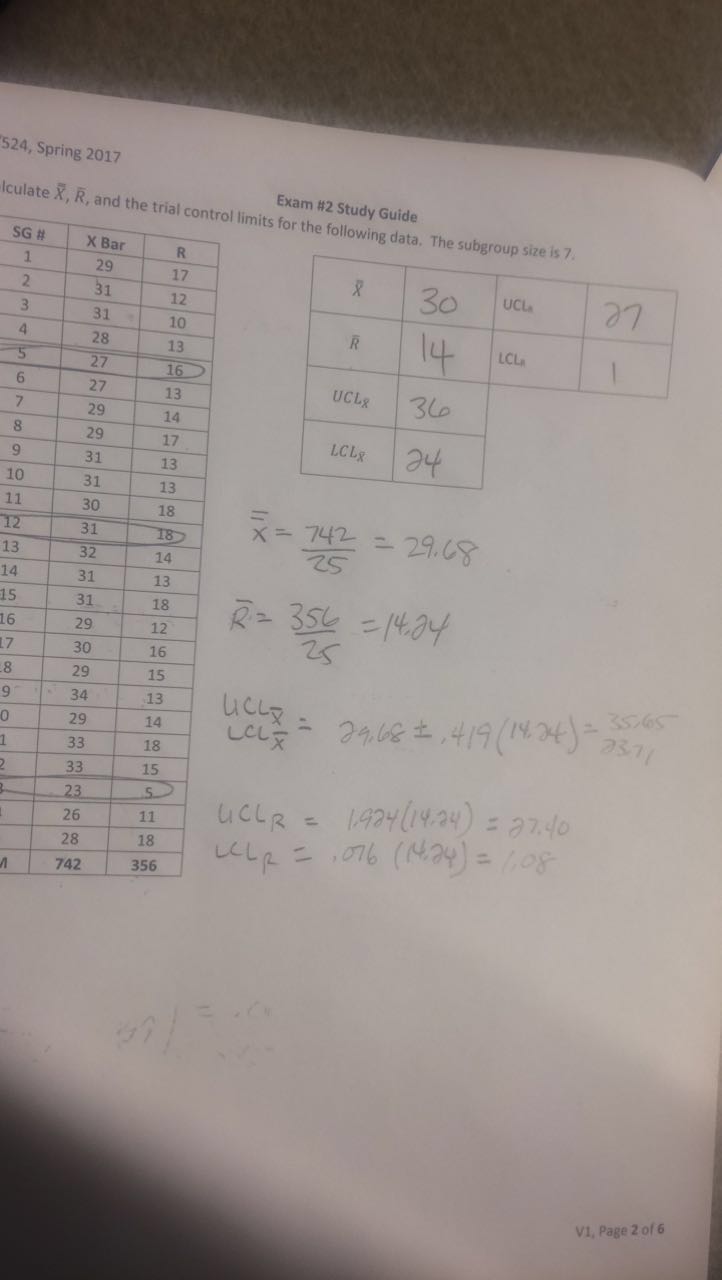 524, Spring 2017
Exam #2 Study Guide
lculate X̿, R̄, and the trial control limits for the following data. The subgroup size is 7.
SG # X Bar R
1 29 17
2 31 12
3 31 10
4 28 13
5 27 16
6 27 13
7 29 14
8 29 17
9 31 13
10 31 13
11 30 18
12 31 18
13 32 14
14 31 13
15 31 18
16 29 12
17 30 16
8 29 15
9 34 13
0 29 14
1 33 18
2 33 15
3 23 5
26 11
28 18
M 742 356
X̿ 30 UCL_R 27
R̄ 14 LCL_R 1
UCL_X̄ 36
LCL_X̄ 24
X̿ = 742/25 = 29.68
R̄ = 356/25 = 14.24
UCL_X̄ LCL_X̄ = 29.68 ± .419(14.24) = 35.65 23.71
UCL_R = 1.924(14.24) = 27.40
LCL_R = .076 (14.24) = 1.08
V1, Page 2 of 6